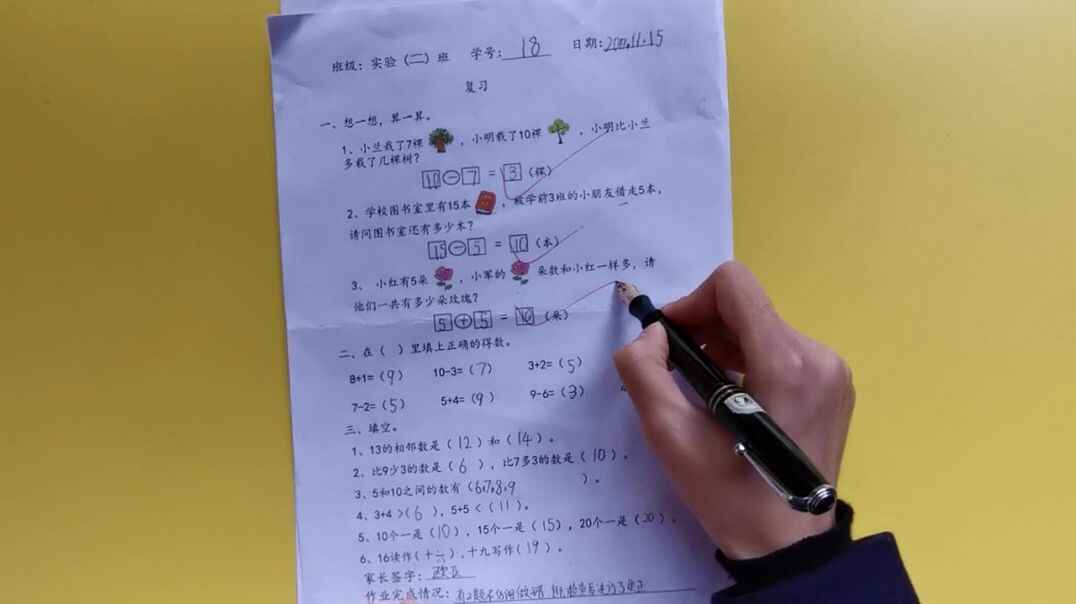 班级: 实验 (二) 班 学号: 18 日期: 2017.11.15
复习
一、想一想,算一算。
1、小兰栽了7棵 , 小明栽了10棵 , 小明比小兰
多栽了几棵树?
10 - 7 = 3 (棵)
2、学校图书室里有15本 , 被学前3班的小朋友借走5本,
请问图书室还有多少本?
15 - 5 = 10 (本)
3、小红有5朵 , 小军的 朵数和小红一样多, 请
他们一共有多少朵玫瑰?
5 + 5 = 10 (朵)
二、在 ( ) 里填上正确的得数。
8+1=(9) 10-3=(7) 3+2=(5)
7-2=(5) 5+4=(9) 9-6=(3) 4
三、填空。
1、13的相邻数是 (12) 和 (14) 。
2、比9少3的数是 (6) , 比7多3的数是 (10) 。
3、5和10之间的数有 (6,7,8,9 ) 。
4、3+4 >(6) , 5+5 < (11) 。
5、10个一是 (10) , 15个一是 (15) , 20个一是 (20) 。
6、16读作 (十六) , 十九写作 (19) 。
家长签字:
作业完成情况: 有2题不仔细做错